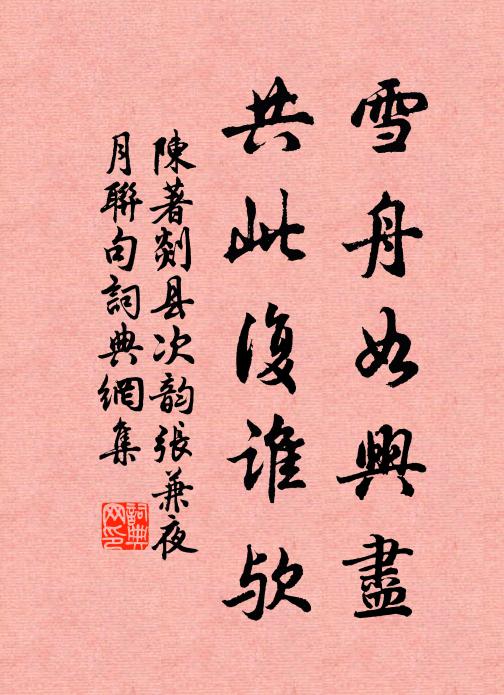 雪舟如興盡
共此復誰欤
陳著剡县次韵張兼夜
月聯句詞典網集
詞典
网印